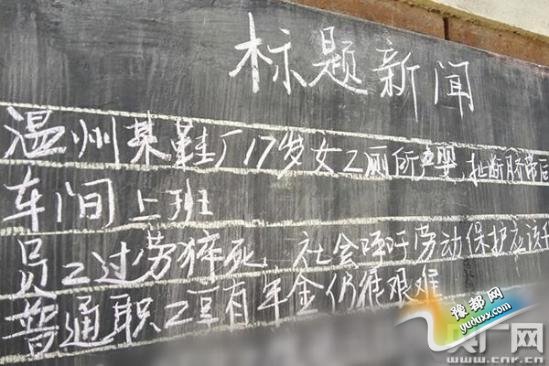 标题新闻
温州某鞋厂17岁女工厕所产婴,扯断脐带回
车间上班
员工过劳猝死,社会呼吁劳动保护应该升
普通职工享有年金仍很艰难
豫都网
yuduxx.com
广网
www.cnr.cn